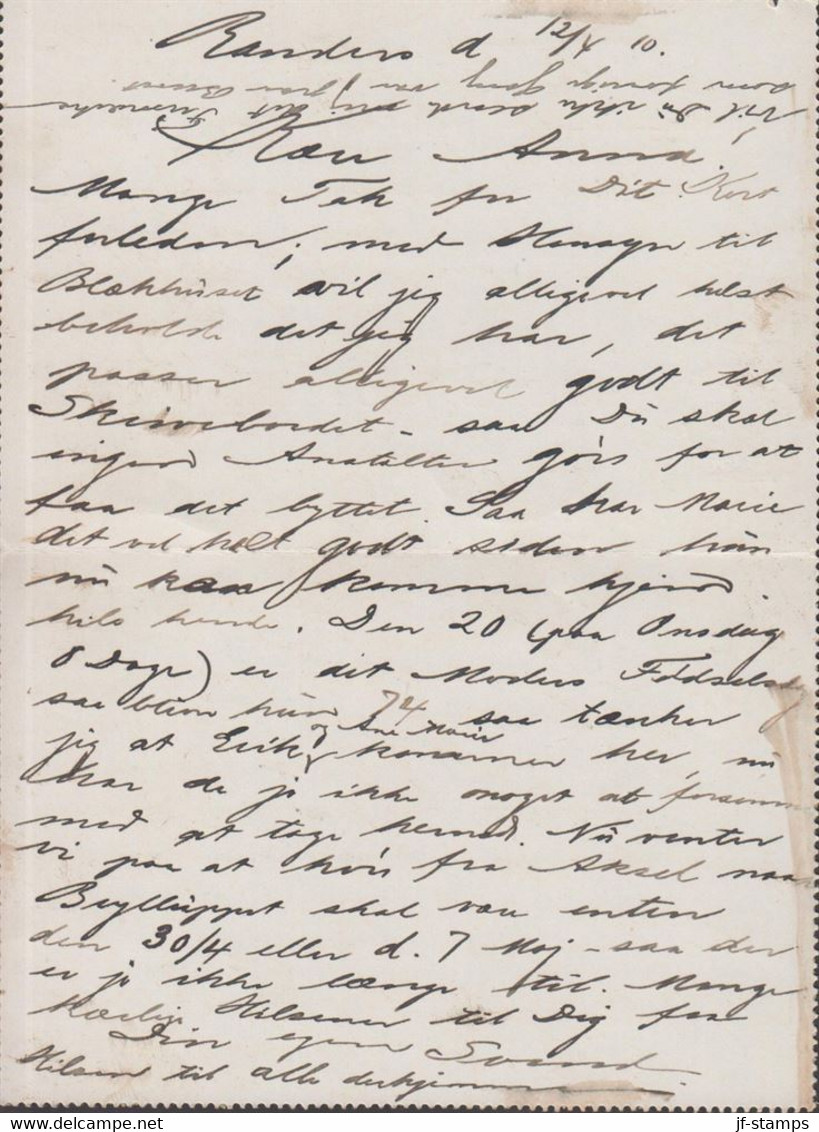 Randers d 12/4 10.
Vil Du ikke
som forrige Gang
Kære Anna.
Mange Tak for Dit Kort
forleden, med Hensyn til
Blækhuset vil jeg alligevel helst
beholde det jeg har, det
passer alligevel godt til
Skrivebordet - saa Du skal
ingen Anstalter gøre for at
faa det byttet. Saa har Marie
det vel helt godt siden hun
nu kan komme hjem.
hils hende. Den 20 (paa Onsdag
8 Dage) er dit Moders Fødselsdag
saa bliver hun 74 saa tænker
jeg at Erik og Ane Marie kommer her, nu
har de jo ikke noget at forsømme
med at tage herned. Nu venter
vi paa at høre fra Aksel naar
Bryllüppet skal være enten
den 30/4 eller d. 7 Maj - saa der
er jo ikke længe til. Mange
Kærlige Hilsener til Dig fra
Din egen Svend
Hilsen til alle derhjemme
jf-stamps